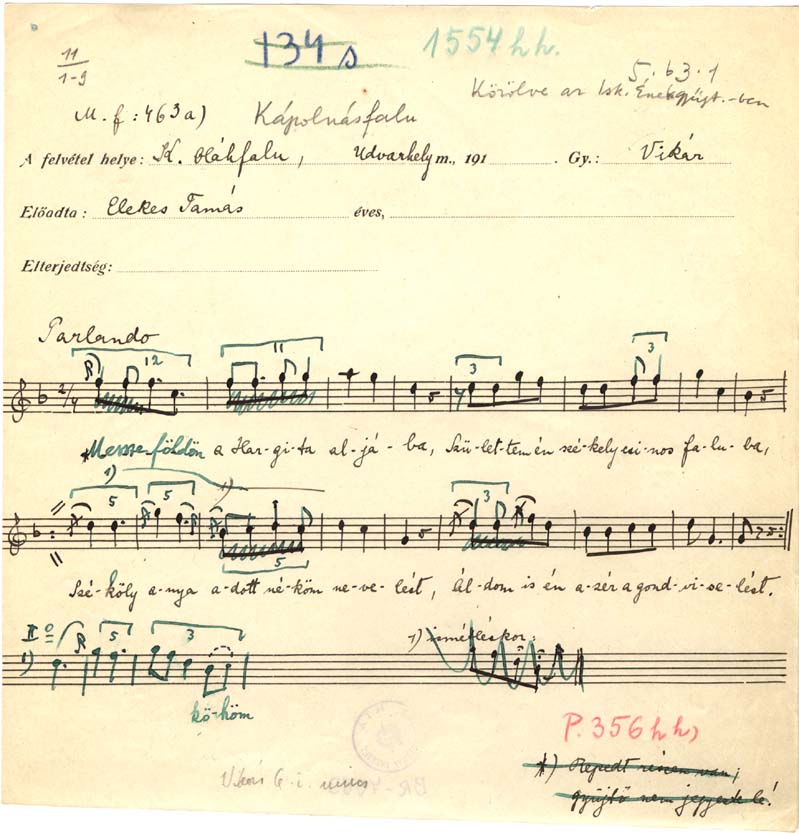 11
1-9
134 s
1554 hh.
5.63.1
M.f: 463a) Kápolnásfalu
Közölve az Isk. Énekgyűjt.-ben
A felvétel helye: K. Oláhfalu, Udvarhely m., 191 . Gy.: Vikár
Előadta: Elekes Tamás éves,
Elterjedtség:
Parlando
12 11 3 3
2/4
*Messze földön a Har-gi-ta al-já-ba, Szü-let-tem én szé-kely csi-nos fa-lu-ba,
1) 5 5 1) 3
5
Szé-köly a-nya a-dott né-köm ne-ve-lést, Ál-dom is én a-zér a gond-vi-se-lést.
II 5 3 1) ismétléskor:
1)
kö-höm
P. 356 hh)
*) Repedt részen van;
gyűjtő nem jegyezte le!